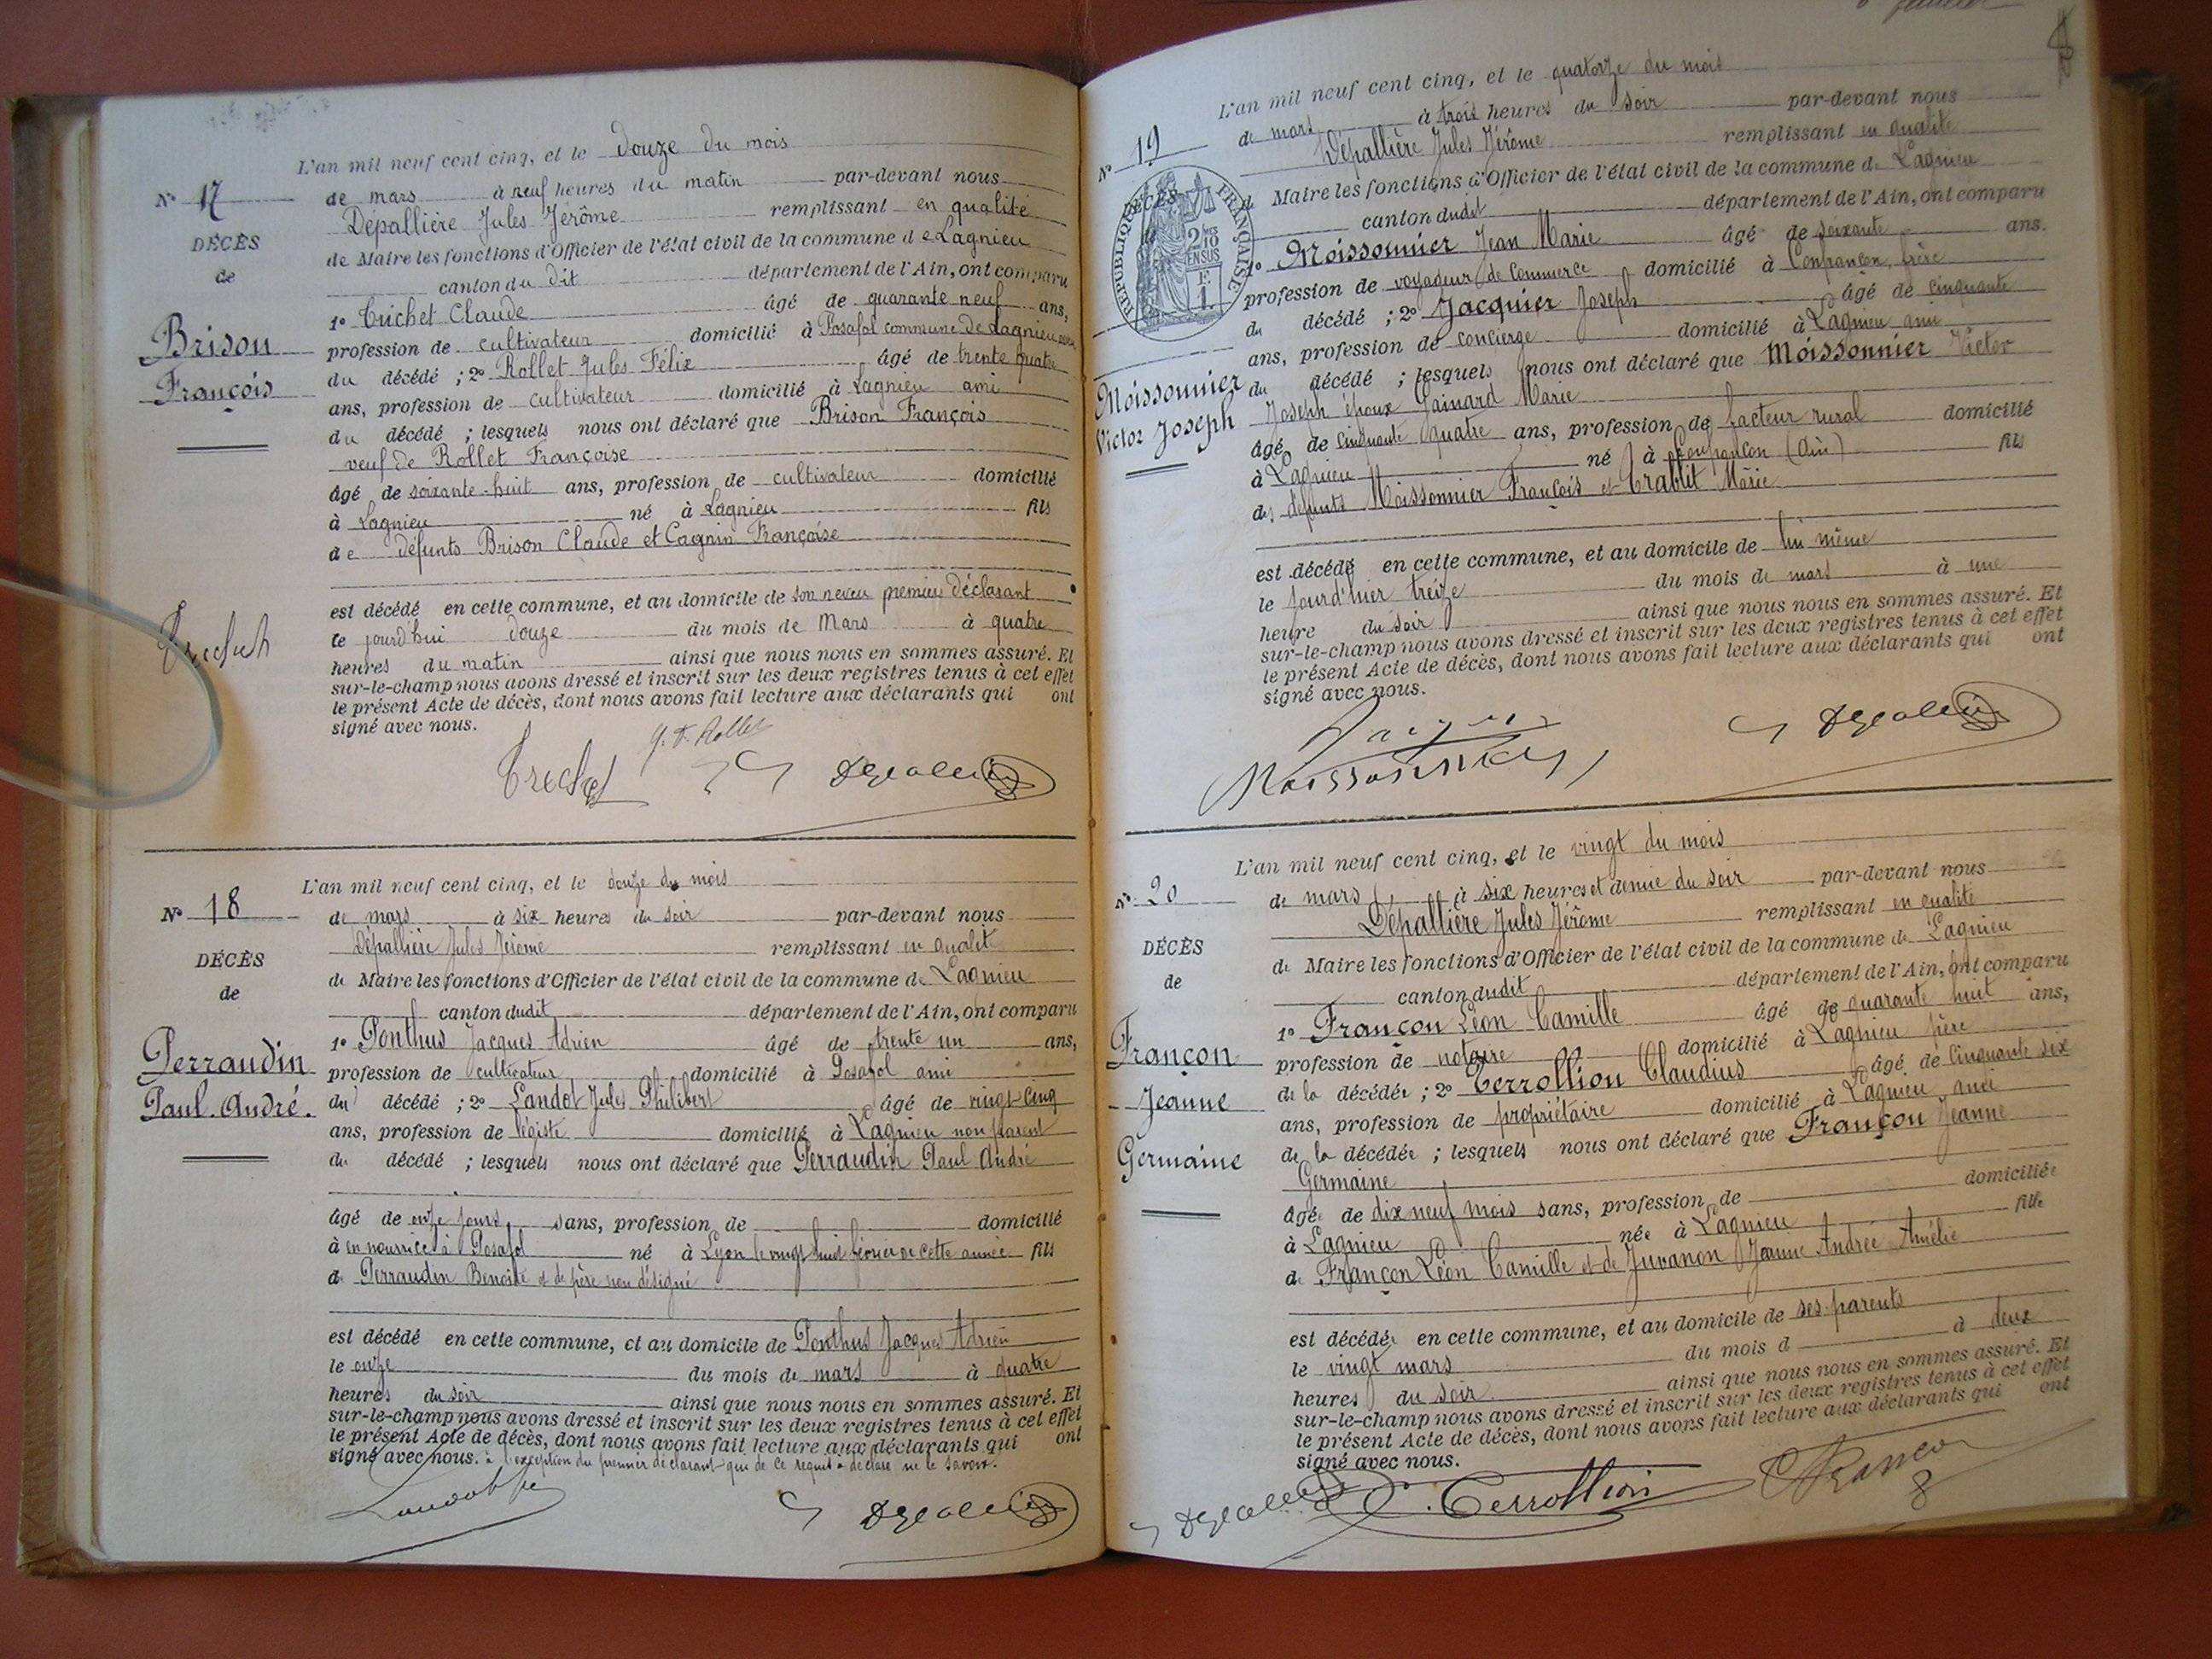 L'an mil neuf cent cinq, et le douze du mois
N° 17
de mars à neuf heures du matin par-devant nous
Dépallière Jules Jérôme remplissant en qualité
DÉCÈS
de Maire les fonctions d'Officier de l'état civil de la commune de Lagnieu
de
canton du dit département de l'Ain, ont comparu
1° Trichet Claude âgé de quarante neuf ans,
Brison
François
profession de cultivateur domicilié à Posafol commune de Lagnieu
du décédé ; 2° Rollet Jules Félix âgé de trente quatre
ans, profession de cultivateur domicilié à Lagnieu ami
du décédé ; lesquels nous ont déclaré que Brison François
veuf de Rollet Françoise
âgé de soixante-huit ans, profession de cultivateur domicilié
à Lagnieu né à Lagnieu fils
de défunts Brison Claude et Cagnin Françoise
est décédé en cette commune, et au domicile de son neveu premier déclarant
le jourd'hui douze du mois de Mars à quatre
heures du matin ainsi que nous nous en sommes assuré. Et
sur-le-champ nous avons dressé et inscrit sur les deux registres tenus à cet effet
le présent Acte de décès, dont nous avons fait lecture aux déclarants qui ont
signé avec nous.
J. F. Rollet
Trechet
L'an mil neuf cent cinq, et le douze du mois
N° 18
de mars à six heures du soir par-devant nous
Dépallière Jules Jérôme remplissant en qualité
DÉCÈS
de Maire les fonctions d'Officier de l'état civil de la commune de Lagnieu
de
canton dudit département de l'Ain, ont comparu
Perraudin
Paul André.
1° Ponthus Jacques Adrien âgé de trente un ans,
profession de cultivateur domicilié à Posafol ami
du décédé ; 2° Landot Jules Philibert âgé de vingt-cinq
ans, profession de légiste domicilié à Lagnieu non parent
du décédé ; lesquels nous ont déclaré que Perraudin Paul André
âgé de onze jours sans, profession de domicilié
à en nourrice à Posafol né à Lyon le vingt huit février de cette année fils
de Perraudin Benoite et de père non désigné
est décédé en cette commune, et au domicile de Ponthus Jacques Adrien
le onze du mois de mars à quatre
heures du soir ainsi que nous nous en sommes assuré. Et
sur-le-champ nous avons dressé et inscrit sur les deux registres tenus à cet effet
le présent Acte de décès, dont nous avons fait lecture aux déclarants qui ont
signé avec nous. à l'exception du premier déclarant qui de ce requis a déclaré ne le savoir.
L'an mil neuf cent cinq, et le quatorze du mois
N° 19
de mars à trois heures du soir par-devant nous
Dépallière Jules Jérôme remplissant en qualité
DÉCÈS
RÉPUBLIQUE FRANÇAISE
de Maire les fonctions d'Officier de l'état civil de la commune de Lagnieu
canton dudit département de l'Ain, ont comparu
1° Moissonnier Jean Marie âgé de soixante ans.
profession de voyageur de Commerce domicilié à Confrançon, frère
du décédé ; 2° Jacquier Joseph âgé de cinquante
ans, profession de concierge domicilié à Lagnieu ami
Moissonnier
Victor Joseph
du décédé ; lesquels nous ont déclaré que Moissonnier Victor
Joseph époux Gainard Marie
âgé de cinquante quatre ans, profession de facteur rural domicilié
à Lagnieu né à Confrançon (Ain) fils
des défunts Moissonnier François et Trablit Marie
est décédé en cette commune, et au domicile de lui même
le jourd'hier treize du mois de mars à une
heure du soir ainsi que nous nous en sommes assuré. Et
sur-le-champ nous avons dressé et inscrit sur les deux registres tenus à cet effet
le présent Acte de décès, dont nous avons fait lecture aux déclarants qui ont
signé avec nous.
Moissonnier
L'an mil neuf cent cinq, et le vingt du mois
N° 20
de mars à six heures et demie du soir par-devant nous
Dépallière Jules Jérôme remplissant en qualité
DÉCÈS
de Maire les fonctions d'Officier de l'état civil de la commune de Lagnieu
de
canton dudit département de l'Ain, ont comparu
1° Françon Léon Camille âgé de quarante huit ans,
Françon
Jeanne
Germaine
profession de notaire domicilié à Lagnieu père
de la décédée ; 2° Terrollion Claudius âgé de cinquante six
ans, profession de propriétaire domicilié à Lagnieu ami
de la décédée ; lesquels nous ont déclaré que Françon Jeanne
Germaine
âgée de dix neuf mois sans, profession de domiciliée
à Lagnieu née à Lagnieu fille
de Françon Léon Camille et de Juvanon Jeanne Andrée Amélie
est décédée en cette commune, et au domicile de ses parents
le vingt mars du mois d à deux
heures du soir ainsi que nous nous en sommes assuré. Et
sur-le-champ nous avons dressé et inscrit sur les deux registres tenus à cet effet
le présent Acte de décès, dont nous avons fait lecture aux déclarants qui ont
signé avec nous.
C. Terrollion
Françon